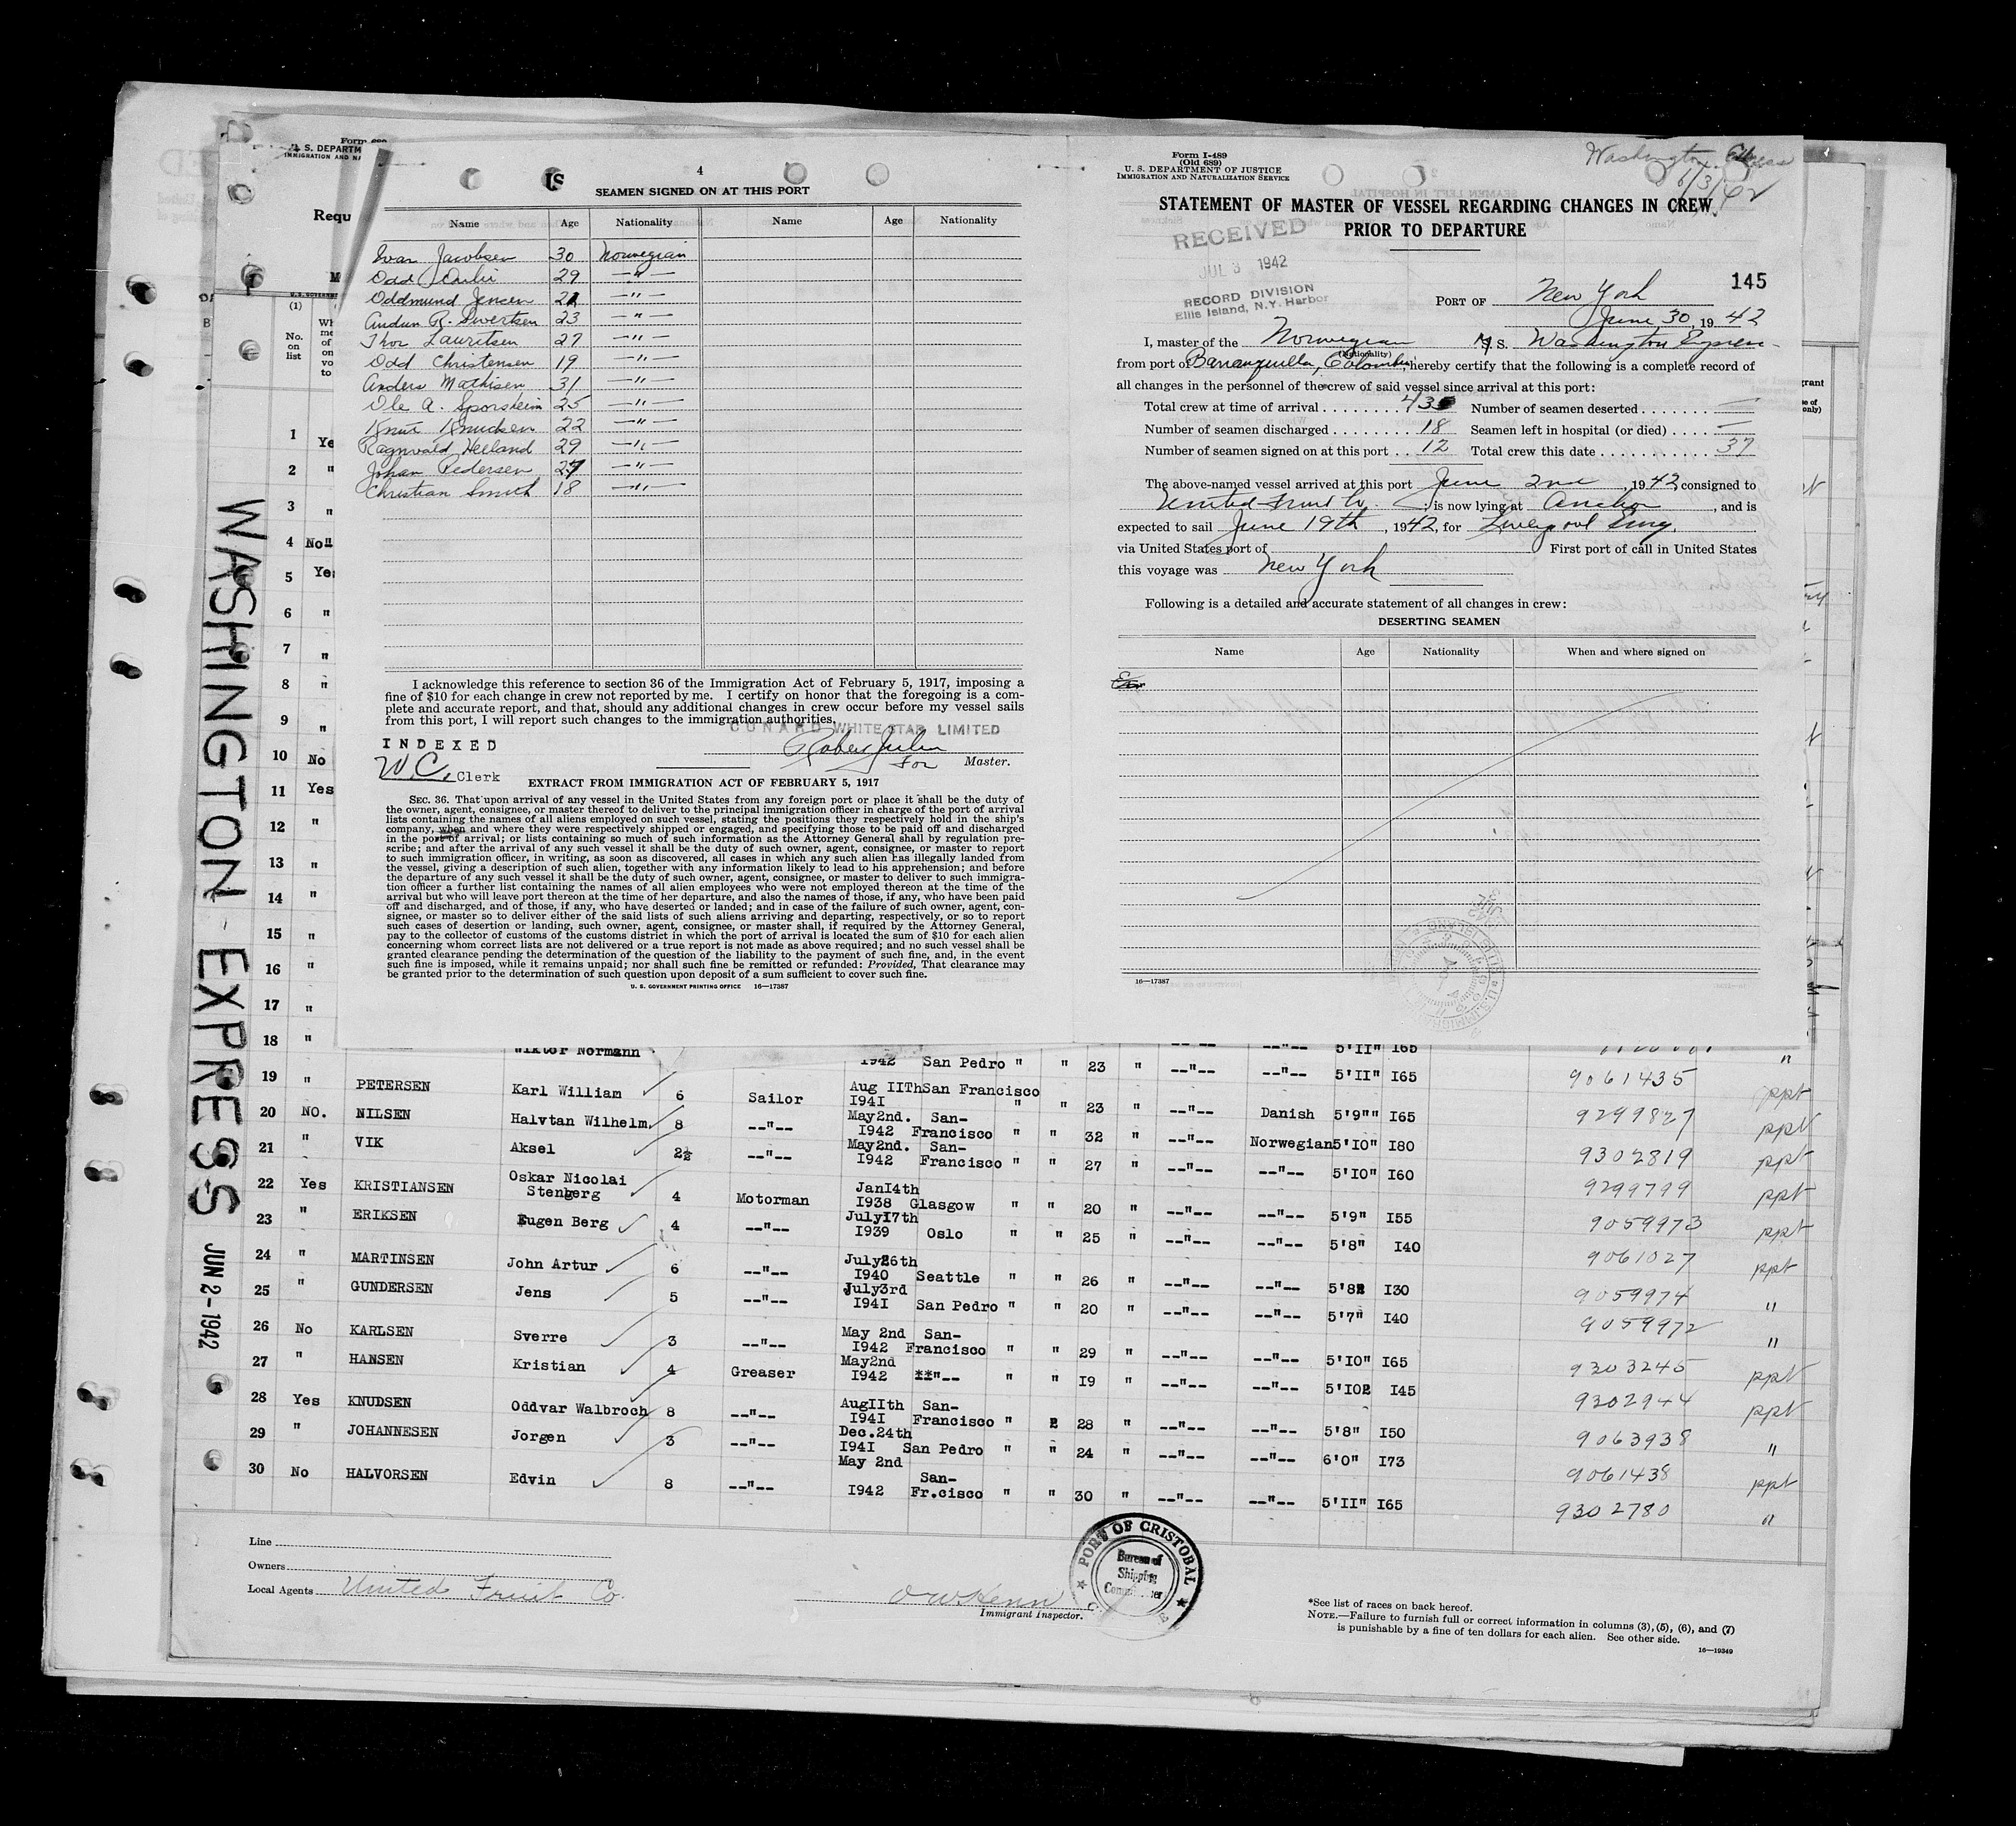 4
IS
SEAMEN SIGNED ON AT THIS PORT
Name Age Nationality Name Age Nationality
Ivar Jacobsen 30 Norwegian
Odd 29 —"—
Oddmund Jensen —"—
Audun R. Sivertsen 23 —"—
Thor Lauritsen 27 —"—
Odd Christensen 19 —"—
Anders Mathisen 31 —"—
Ole A. Sporsheim 25 —"—
Knut Knudsen 22 —"—
Ragnvald Helland 29 —"—
Johan Pedersen 27 —"—
Christian Smith 18 —"—
I acknowledge this reference to section 36 of the Immigration Act of February 5, 1917, imposing a
fine of $10 for each change in crew not reported by me. I certify on honor that the foregoing is a com-
plete and accurate report, and that, should any additional changes in crew occur before my vessel sails
from this port, I will report such changes to the immigration authorities.
CUNARD WHITE STAR LIMITED
INDEXED
W.C. Clerk
For Master.
EXTRACT FROM IMMIGRATION ACT OF FEBRUARY 5, 1917
SEC. 36. That upon arrival of any vessel in the United States from any foreign port or place it shall be the duty of
the owner, agent, consignee, or master thereof to deliver to the principal immigration officer in charge of the port of arrival
lists containing the names of all aliens employed on such vessel, stating the positions they respectively hold in the ship's
company, when and where they were respectively shipped or engaged, and specifying those to be paid off and discharged
in the port of arrival; or lists containing so much of such information as the Attorney General shall by regulation pre-
scribe; and after the arrival of any such vessel it shall be the duty of such owner, agent, consignee, or master to report
to such immigration officer, in writing, as soon as discovered, all cases in which any such alien has illegally landed from
the vessel, giving a description of such alien, together with any information likely to lead to his apprehension; and before
the departure of any such vessel it shall be the duty of such owner, agent, consignee, or master to deliver to such immigra-
tion officer a further list containing the names of all alien employees who were not employed thereon at the time of the
arrival but who will leave port thereon at the time of her departure, and also the names of those, if any, who have been paid
off and discharged, and of those, if any, who have deserted or landed; and in case of the failure of such owner, agent, con-
signee, or master so to deliver either of the said lists of such aliens arriving and departing, respectively, or so to report
such cases of desertion or landing, such owner, agent, consignee, or master shall, if required by the Attorney General,
pay to the collector of customs of the customs district in which the port of arrival is located the sum of $10 for each alien
concerning whom correct lists are not delivered or a true report is not made as above required; and no such vessel shall be
granted clearance pending the determination of the question of the liability to the payment of such fine, and, in the event
such fine is imposed, while it remains unpaid; nor shall such fine be remitted or refunded: Provided, That clearance may
be granted prior to the determination of such question upon deposit of a sum sufficient to cover such fine.
U. S. GOVERNMENT PRINTING OFFICE 16—17387
Form I-489
(Old 689)
U. S. DEPARTMENT OF JUSTICE
IMMIGRATION AND NATURALIZATION SERVICE
Washington
STATEMENT OF MASTER OF VESSEL REGARDING CHANGES IN CREW
PRIOR TO DEPARTURE
RECEIVED
JUL 3 1942
RECORD DIVISION
Ellis Island, N.Y. Harbor
145
PORT OF New York
June 30, 1942
I, master of the Norwegian M S. Washington Express
(Nationality)
from port of Barranquilla, Colombia, hereby certify that the following is a complete record of
all changes in the personnel of the crew of said vessel since arrival at this port:
Total crew at time of arrival 43 Number of seamen deserted —
Number of seamen discharged 18 Seamen left in hospital (or died) —
Number of seamen signed on at this port 12 Total crew this date 37
The above-named vessel arrived at this port June 2nd, 1942, consigned to
United Fruit Co.; is now lying at Anchor, and is
expected to sail June 19th, 1942, for Liverpool Eng.
via United States port of First port of call in United States
this voyage was New York
Following is a detailed and accurate statement of all changes in crew:
DESERTING SEAMEN
Name Age Nationality When and where signed on
16—17387
U. S. DEPARTM
IMMIGRATION AND NA
Requ
(1)
No.
on
list
1 Ye
2 "
3 "
4 No"
5 Yes
6 "
7 "
8 "
9 "
10 No
11 Yes
12 "
13 "
14 "
15 "
16 "
17 "
18 "
WASHINGTON - EXPRESS
JUN 2-1942
Wiktor Normann 1942 San Pedro " " 23 " --"-- --"-- 5'II" I65
19 " PETERSEN Karl William 6 Sailor Aug IITh I94I San Francisco " " 23 " --"-- Danish 5'9"" I65 9299827 ppt
20 NO. NILSEN Halvtan Wilhelm 8 --"-- May2nd. I942 San-Francisco " " 32 " --"-- Norwegian 5'IO" I80 9302819 ppt
21 " VIK Aksel 2½ --"-- May2nd. I942 San-Francisco " " 27 " --"-- --"-- 5'IO" I60 9299799 ppt
22 Yes KRISTIANSEN Oskar Nicolai Stenberg 4 Motorman JanI4th I938 Glasgow " " 20 " --"-- --"-- 5'9" I55 9059973 ppt
23 " ERIKSEN Eugen Berg 4 --"-- JulyI7th I939 Oslo " " 25 " --"-- --"-- 5'8" I40 9061027 ppt
24 " MARTINSEN John Artur 6 --"-- July26th I940 Seattle " " 26 " --"-- --"-- 5'8 I30 9059974 "
25 " GUNDERSEN Jens 5 --"-- July3rd I94I San Pedro " " 20 " --"-- --"-- 5'7" I40 9059972 "
26 No KARLSEN Sverre 3 --"-- May 2nd I942 San-Francisco " " 29 " --"-- --"-- 5'IO" I65 9303245 ppt
27 " HANSEN Kristian 4 Greaser May2nd I942 **"-- " " I9 " --"-- --"-- 5'IO I45 9302944 ppt
28 Yes KNUDSEN Oddvar Walbroch 8 --"-- AugIIth I94I San-Francisco " 28 " --"-- --"-- 5'8" I50 9063938 "
29 " JOHANNESEN Jorgen 3 --"-- Dec.24th I94I San Pedro " " 24 " --"-- --"-- 6'0" I73 9061438 ppt
30 No HALVORSEN Edvin 8 --"-- May 2nd I942 San-Fr.cisco " " 30 " --"-- --"-- 5'II" I65 9302780 "
Line
Owners
Local Agents United Fruit Co.
Immigrant Inspector.
PORT OF CRISTOBAL
Bureau of
Shipping
*See list of races on back hereof.
NOTE.—Failure to furnish full or correct information in columns (3), (5), (6), and (7)
is punishable by a fine of ten dollars for each alien. See other side.
16—19349